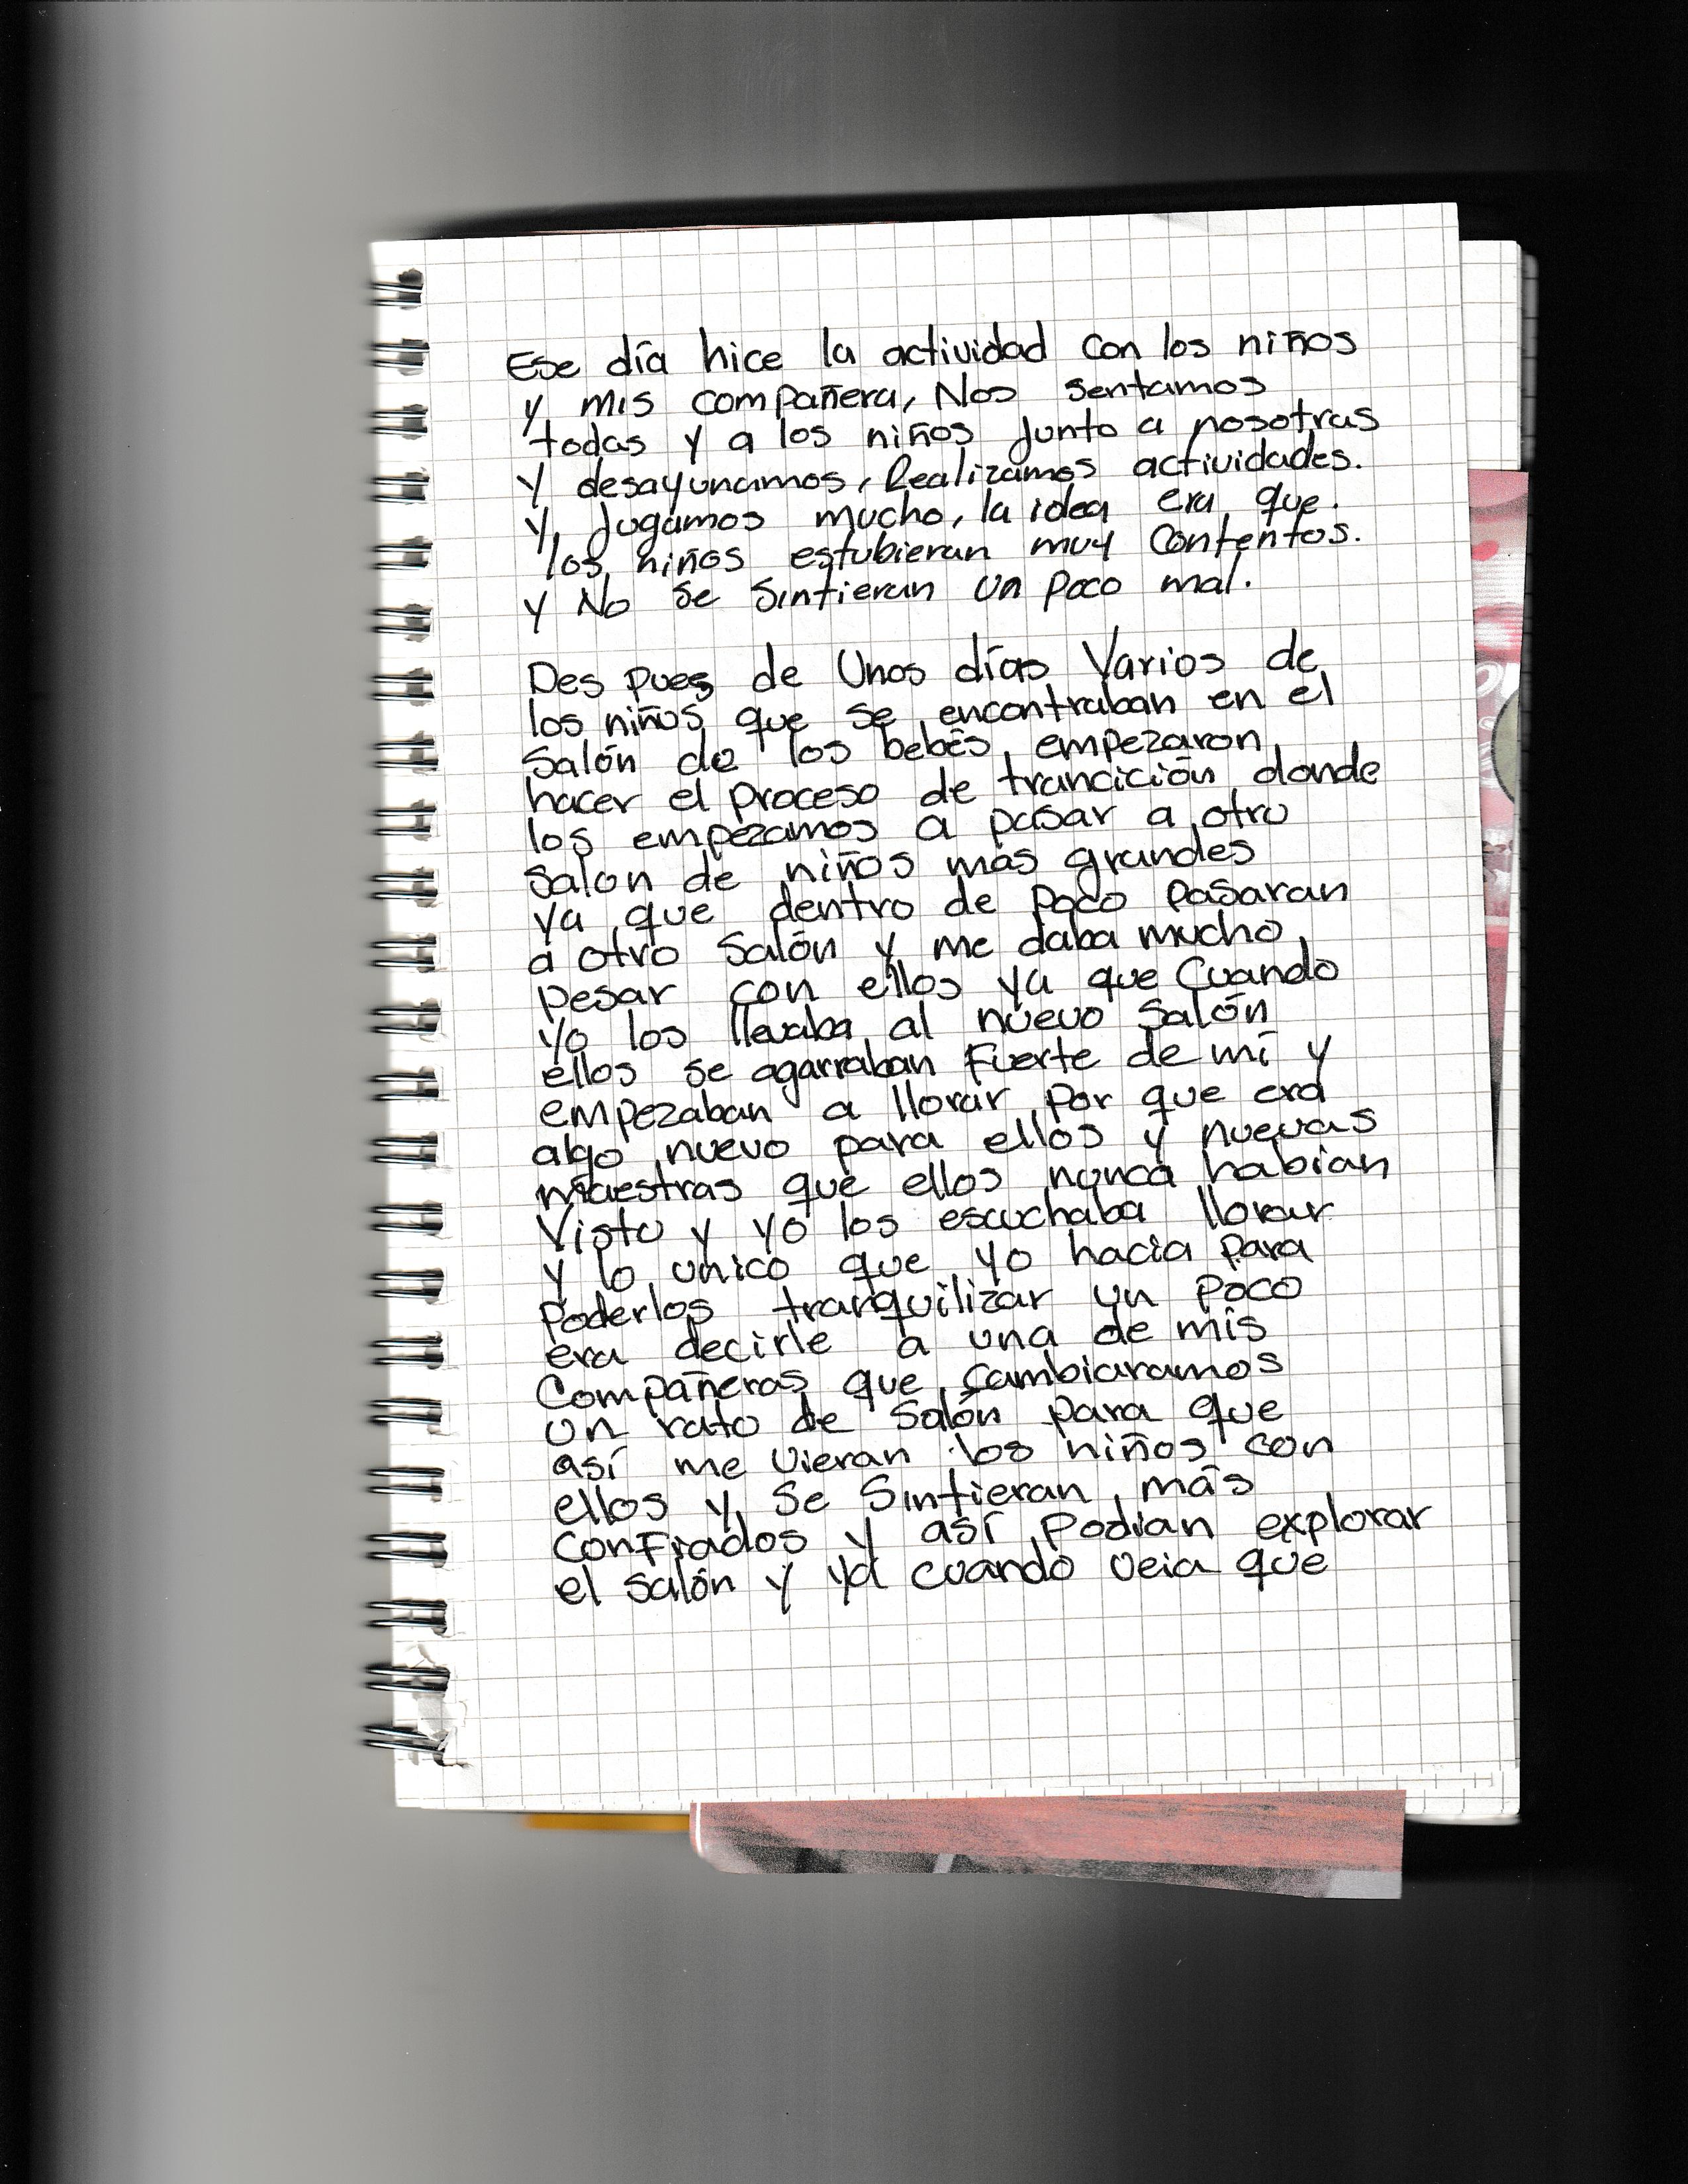 Ese día hice la actividad con los niños
y mis compañera, Nos sentamos
todas y a los niños junto a nosotras
y desayunamos, Realizamos actividades.
y jugamos mucho, la idea era que.
los niños estubieran muy contentos.
y No se sintieran un poco mal.
Des pues de Unos días Varios de
los niños que se encontraban en el
Salón de los bebés empezaron
hacer el proceso de trancición donde
los empezamos a pasar a otro
salon de niños mas grandes
ya que dentro de poco pasaran
a otro Salón y me daba mucho
pesar con ellos ya que Cuando
yo los llevaba al nuevo Salón
ellos se agarraban Fuerte de mí y
empezaban a llorar por que era
algo nuevo para ellos y nuevas
maestras que ellos nunca habian
Visto y yo los escuchaba llorar
y lo unico que yo hacia para
Poderlos tranquilizar un Poco
era decirle a una de mis
Compañeras que cambiaramos
un rato de Salón para que
así me vieran los niños con
ellos y Se Sintieran más
confiados y así Podian explorar
el salón y ya cuando veia que